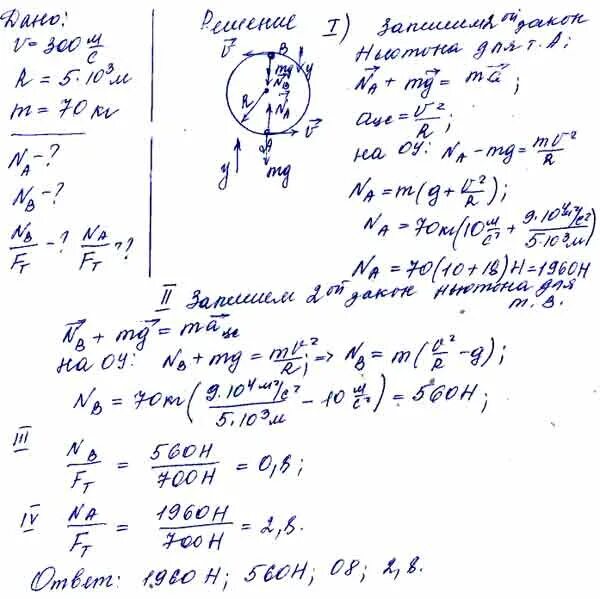 Дано:
v = 300 м/с
R = 5·10³ м
m = 70 кг
N_A - ?
N_B - ?
N_B/F_T - ? N_A/F_T - ?
Решение
v⃗
B
y
mg⃗
N⃗_B
R
N⃗_A
v⃗
y
mg
I) Запишем 2ой закон
Ньютона для т. А;
N⃗_A + mg⃗ = ma⃗;
a_цс = v²/R;
на OY: N_A - mg = mv²/R
N_A = m(g + v²/R);
N_A = 70кг(10 м/с² + 9·10⁴ м²/с² / 5·10³ м)
N_A = 70(10 + 18) Н = 1960Н
II Запишем 2ой закон Ньютона для
т. В.
N⃗_B + mg⃗ = ma⃗_цс
на OY: N_B + mg = mv²/R; => N_B = m(v²/R - g);
N_B = 70кг(9·10⁴ м²/с² / 5·10³ м - 10 м/с²) = 560Н;
III N_B/F_T = 560Н/700Н = 0,8;
IV N_A/F_T = 1960Н/700Н = 2,8.
Ответ: 1960 Н; 560Н; 08; 2,8.